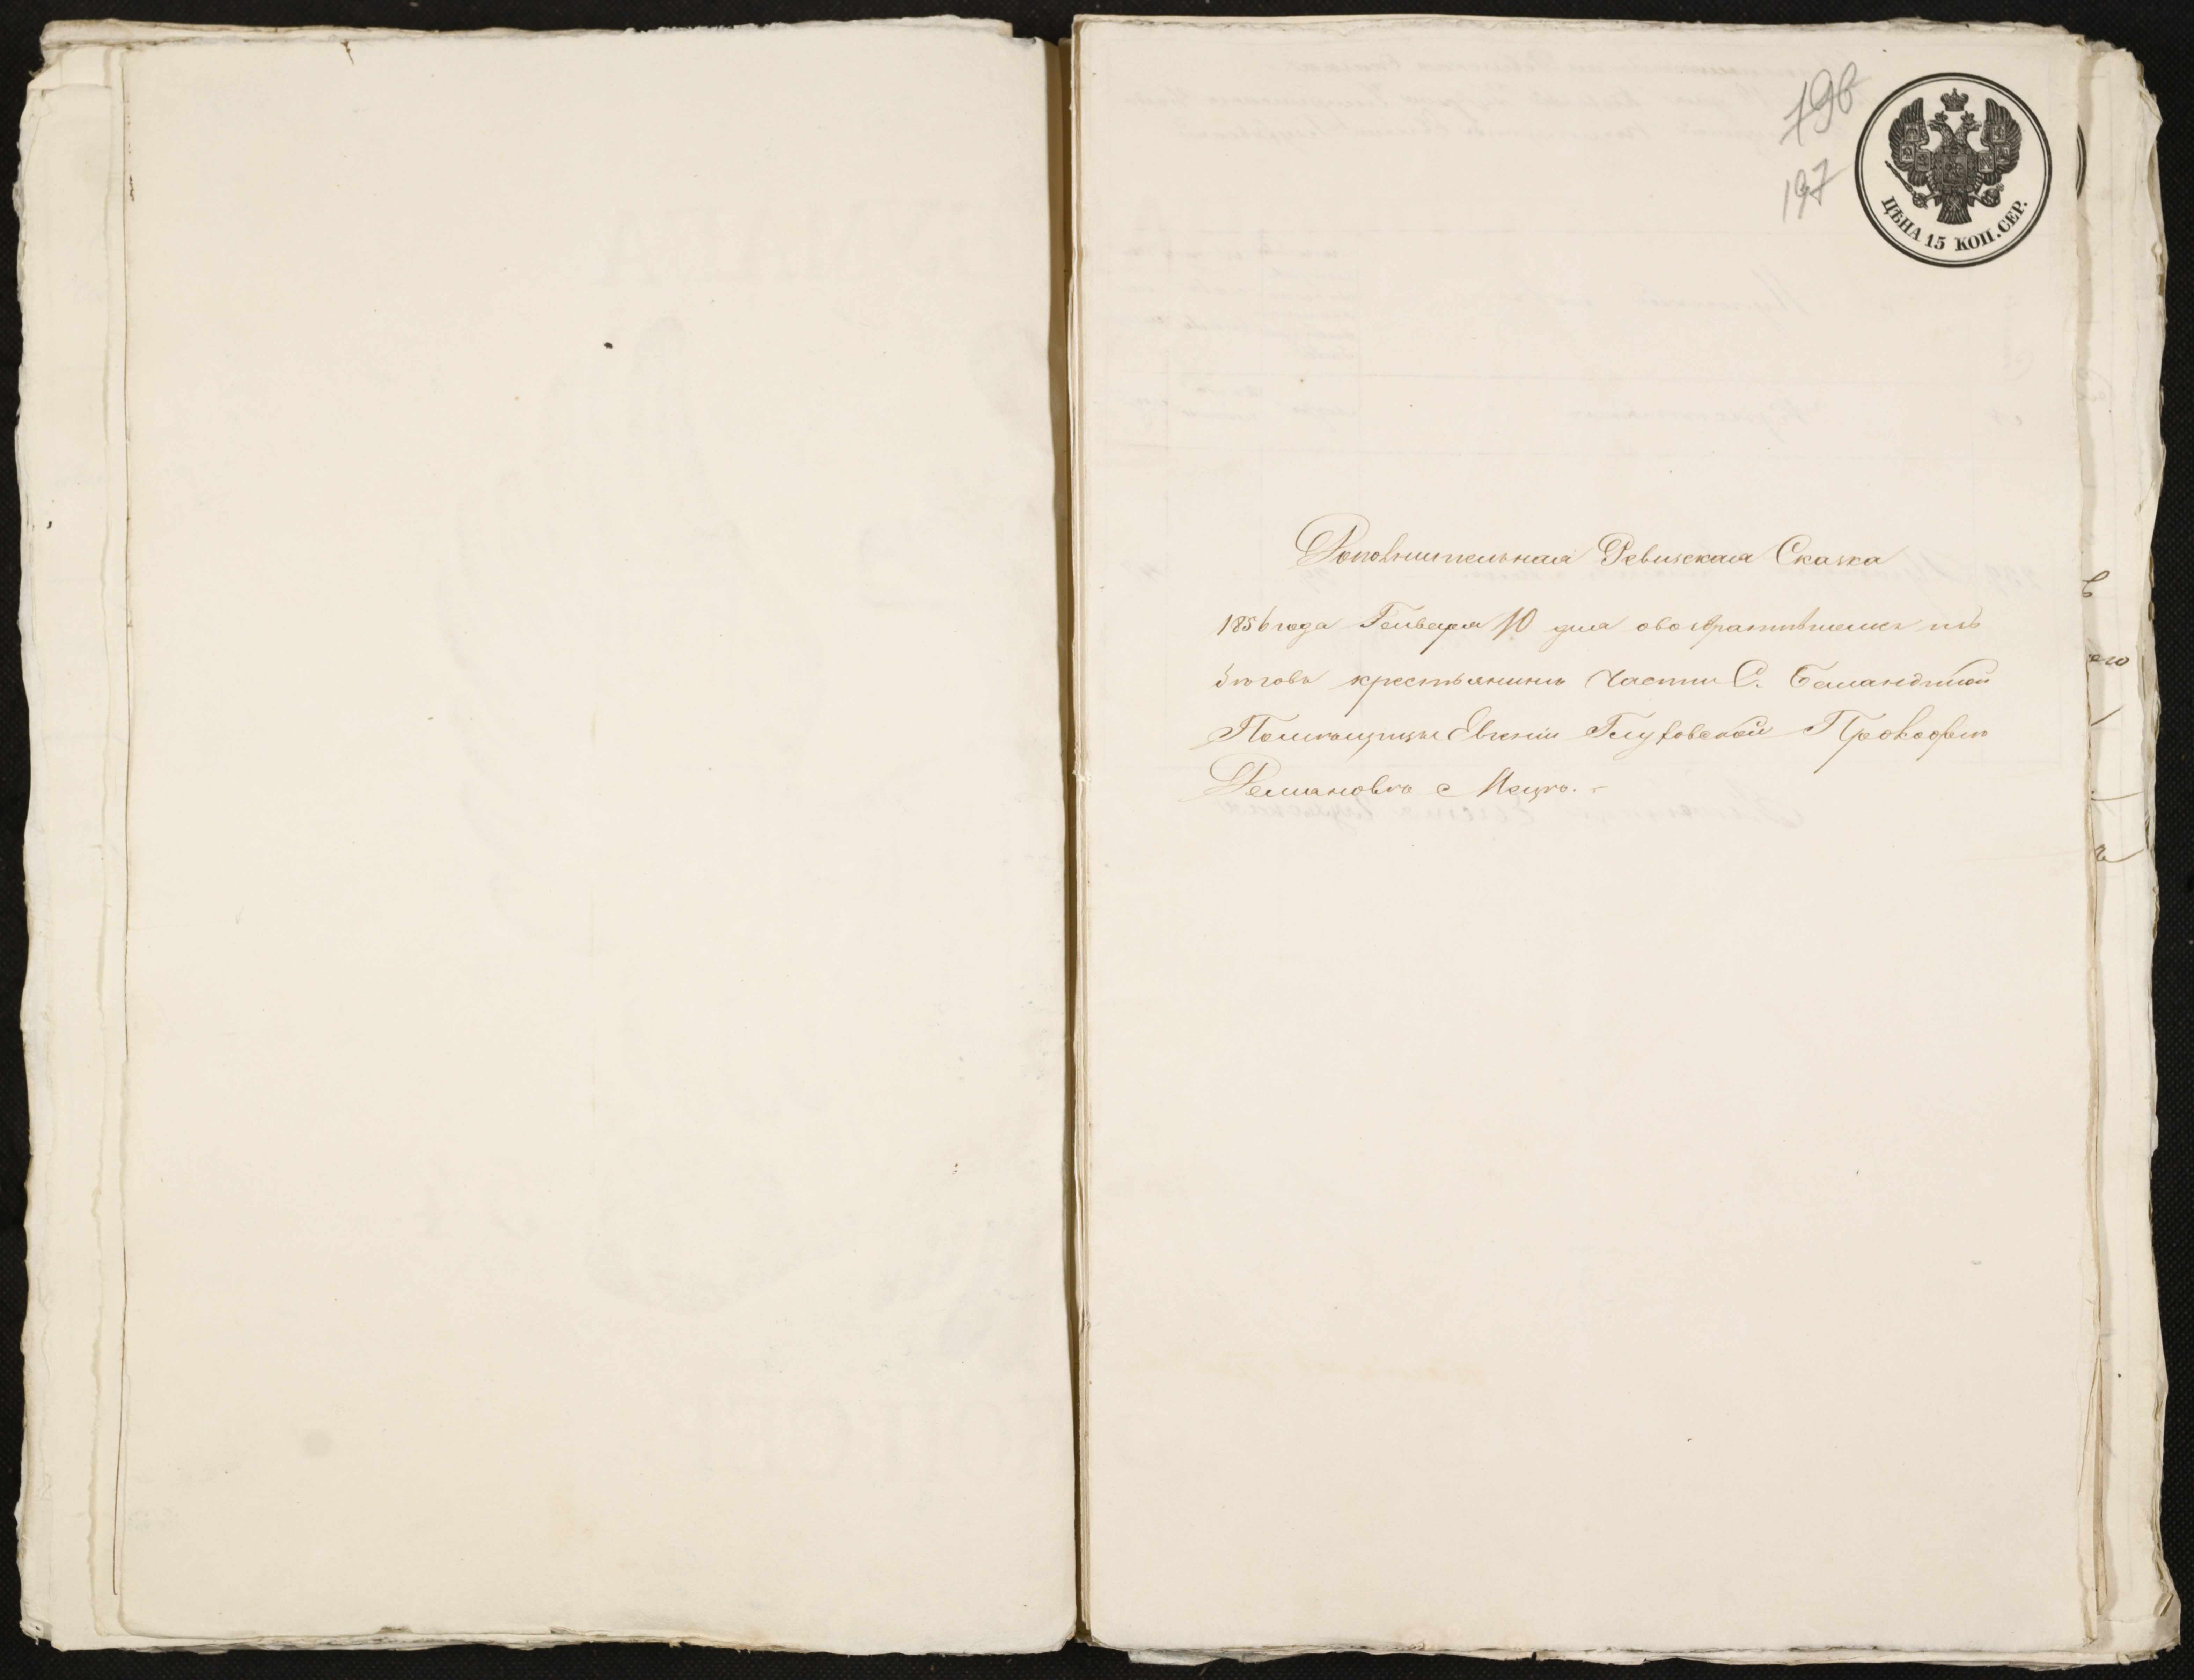 196
197
ЦѢНА 15 КОП. СЕР.
Дополнительная Ревизская Сказка
1856 года Генваря 10 дня о возвратившемся изъ
бѣговъ крестьянинѣ части С. Баландиной
Помѣщицы Евгеніи Глуховской Прокофіѣ